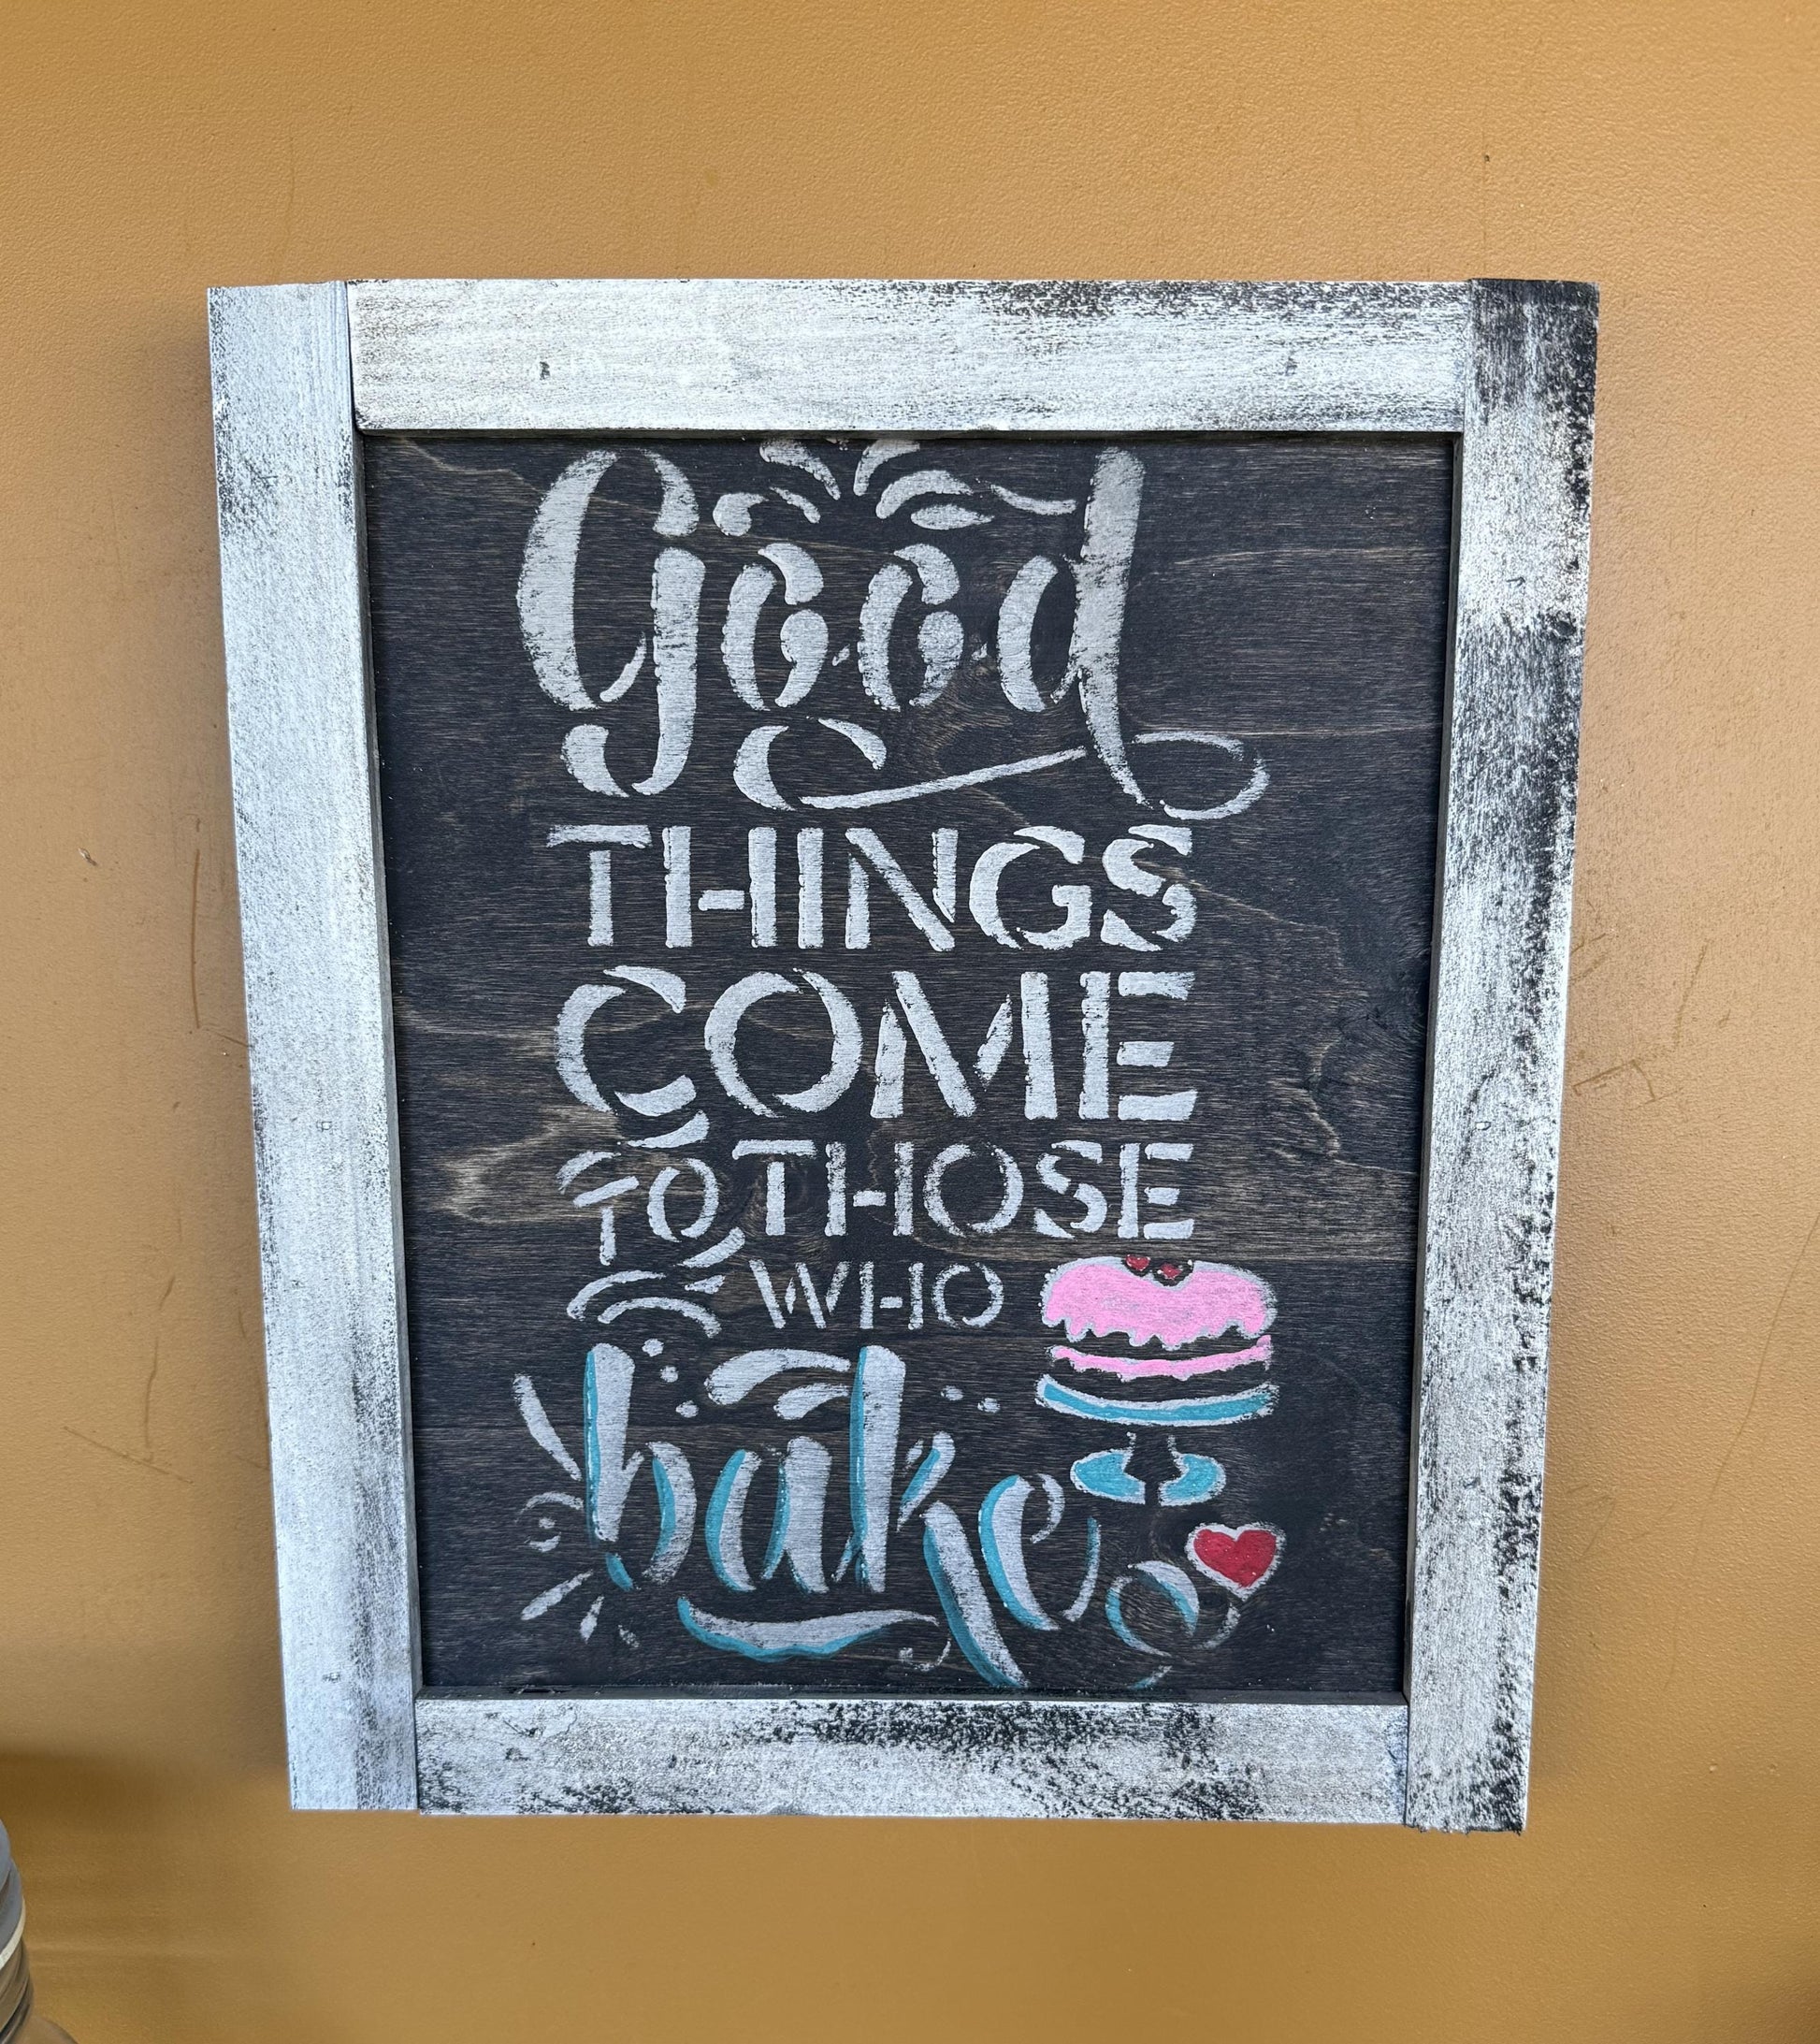 Good
THINGS
COME
TO THOSE
WHO
bake